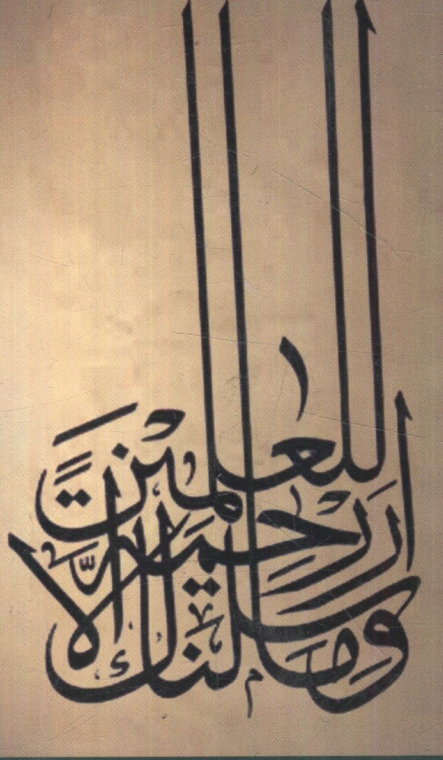 وما أرسلناك إلا رحمة للعلمين